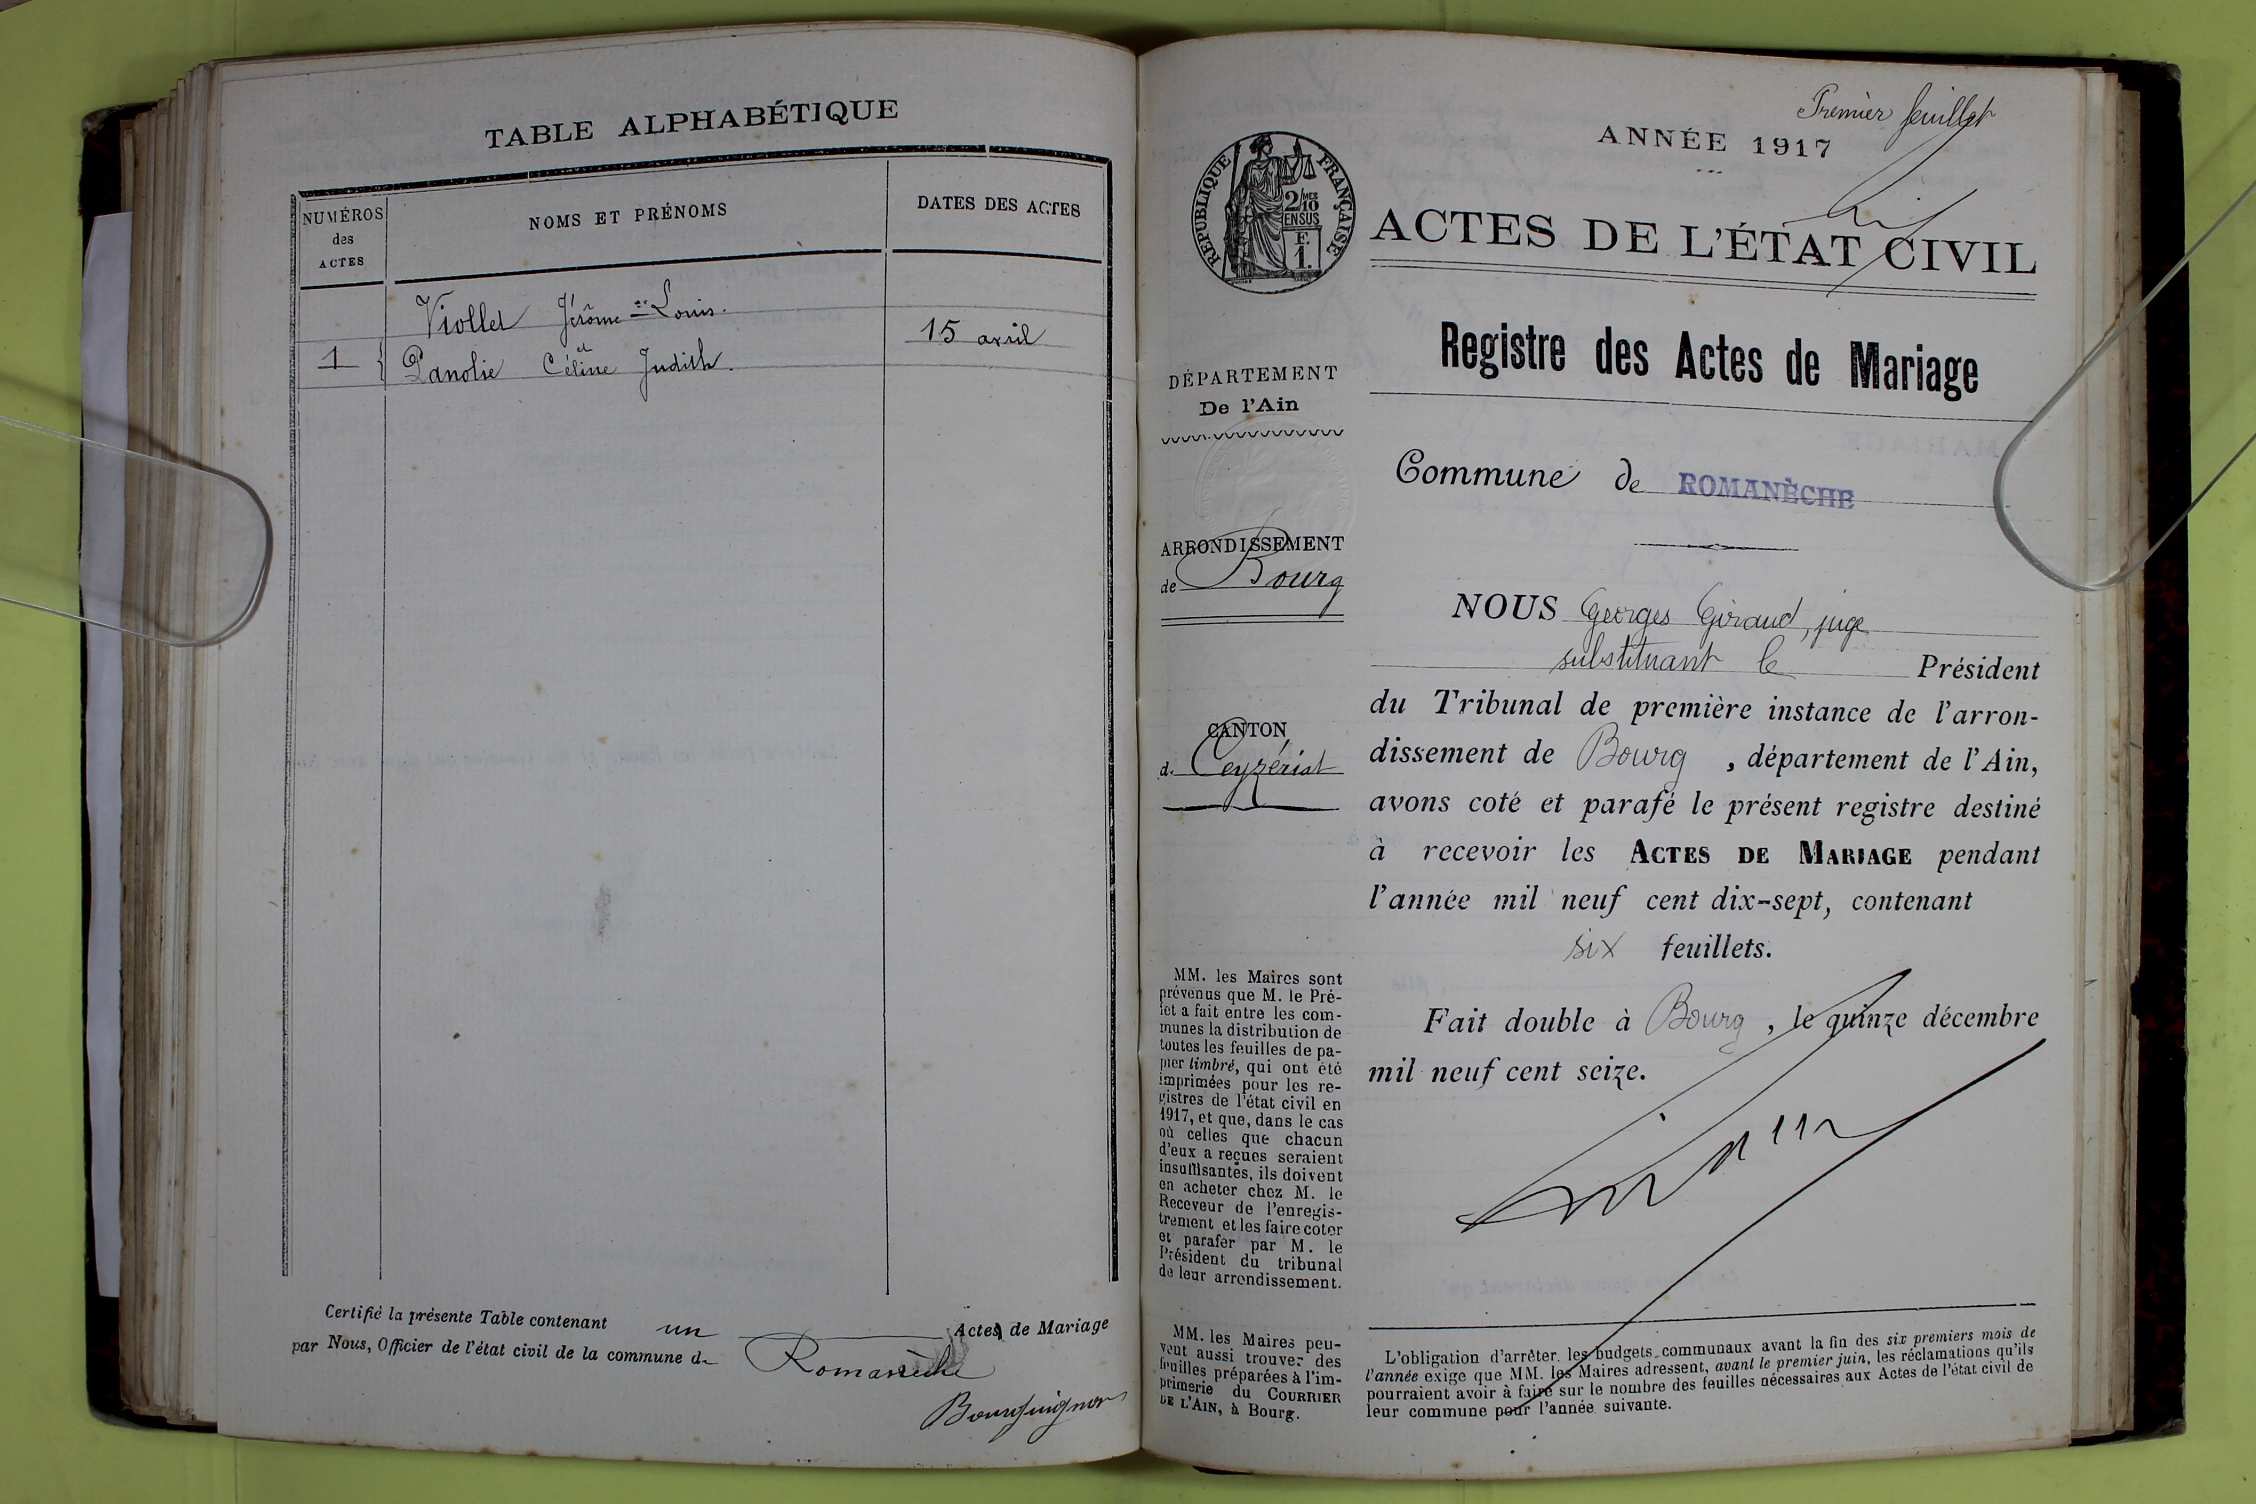 TABLE ALPHABÉTIQUE
NUMÉROS
des
ACTES
NOMS ET PRÉNOMS
DATES DES ACTES
Viollet Jérôme = Louis.
et
1
Panolie Céline Judith.
15 avril
Certifié la présente Table contenant un Actes de Mariage
par Nous, Officier de l'état civil de la commune de Romanèche
Bourguignon
Premier feuillet
ANNÉE 1917
RÉPUBLIQUE FRANÇAISE
2/10MES
EN SUS
F.
1.
ACTES DE L'ÉTAT CIVIL
Registre des Actes de Mariage
DÉPARTEMENT
De l'Ain
Commune de ROMANÈCHE
ARRONDISSEMENT
de Bourg
CANTON
d. Ceyzériat
NOUS Georges Giraud, juge
substituant le Président
du Tribunal de première instance de l'arron-
dissement de Bourg, département de l'Ain,
avons coté et parafé le présent registre destiné
à recevoir les ACTES DE MARIAGE pendant
l'année mil neuf cent dix-sept, contenant
six feuillets.
Fait double à Bourg, le quinze décembre
mil neuf cent seize.
MM. les Maires sont
prévenus que M. le Pré-
fet a fait entre les com-
munes la distribution de
toutes les feuilles de pa-
pier timbré, qui ont été
imprimées pour les re-
gistres de l'état civil en
1917, et que, dans le cas
où celles que chacun
d'eux a reçues seraient
insuffisantes, ils doivent
en acheter chez M. le
Receveur de l'enregis-
trement et les faire coter
et parafer par M. le
Président du tribunal
de leur arrondissement.
MM. les Maires peu-
vent aussi trouver des
feuilles préparées à l'im-
primerie du COURRIER
DE L'AIN, à Bourg.
L'obligation d'arrêter les budgets communaux avant la fin des six premiers mois de
l'année exige que MM. les Maires adressent, avant le premier juin, les réclamations qu'ils
pourraient avoir à faire sur le nombre des feuilles nécessaires aux Actes de l'état civil de
leur commune pour l'année suivante.